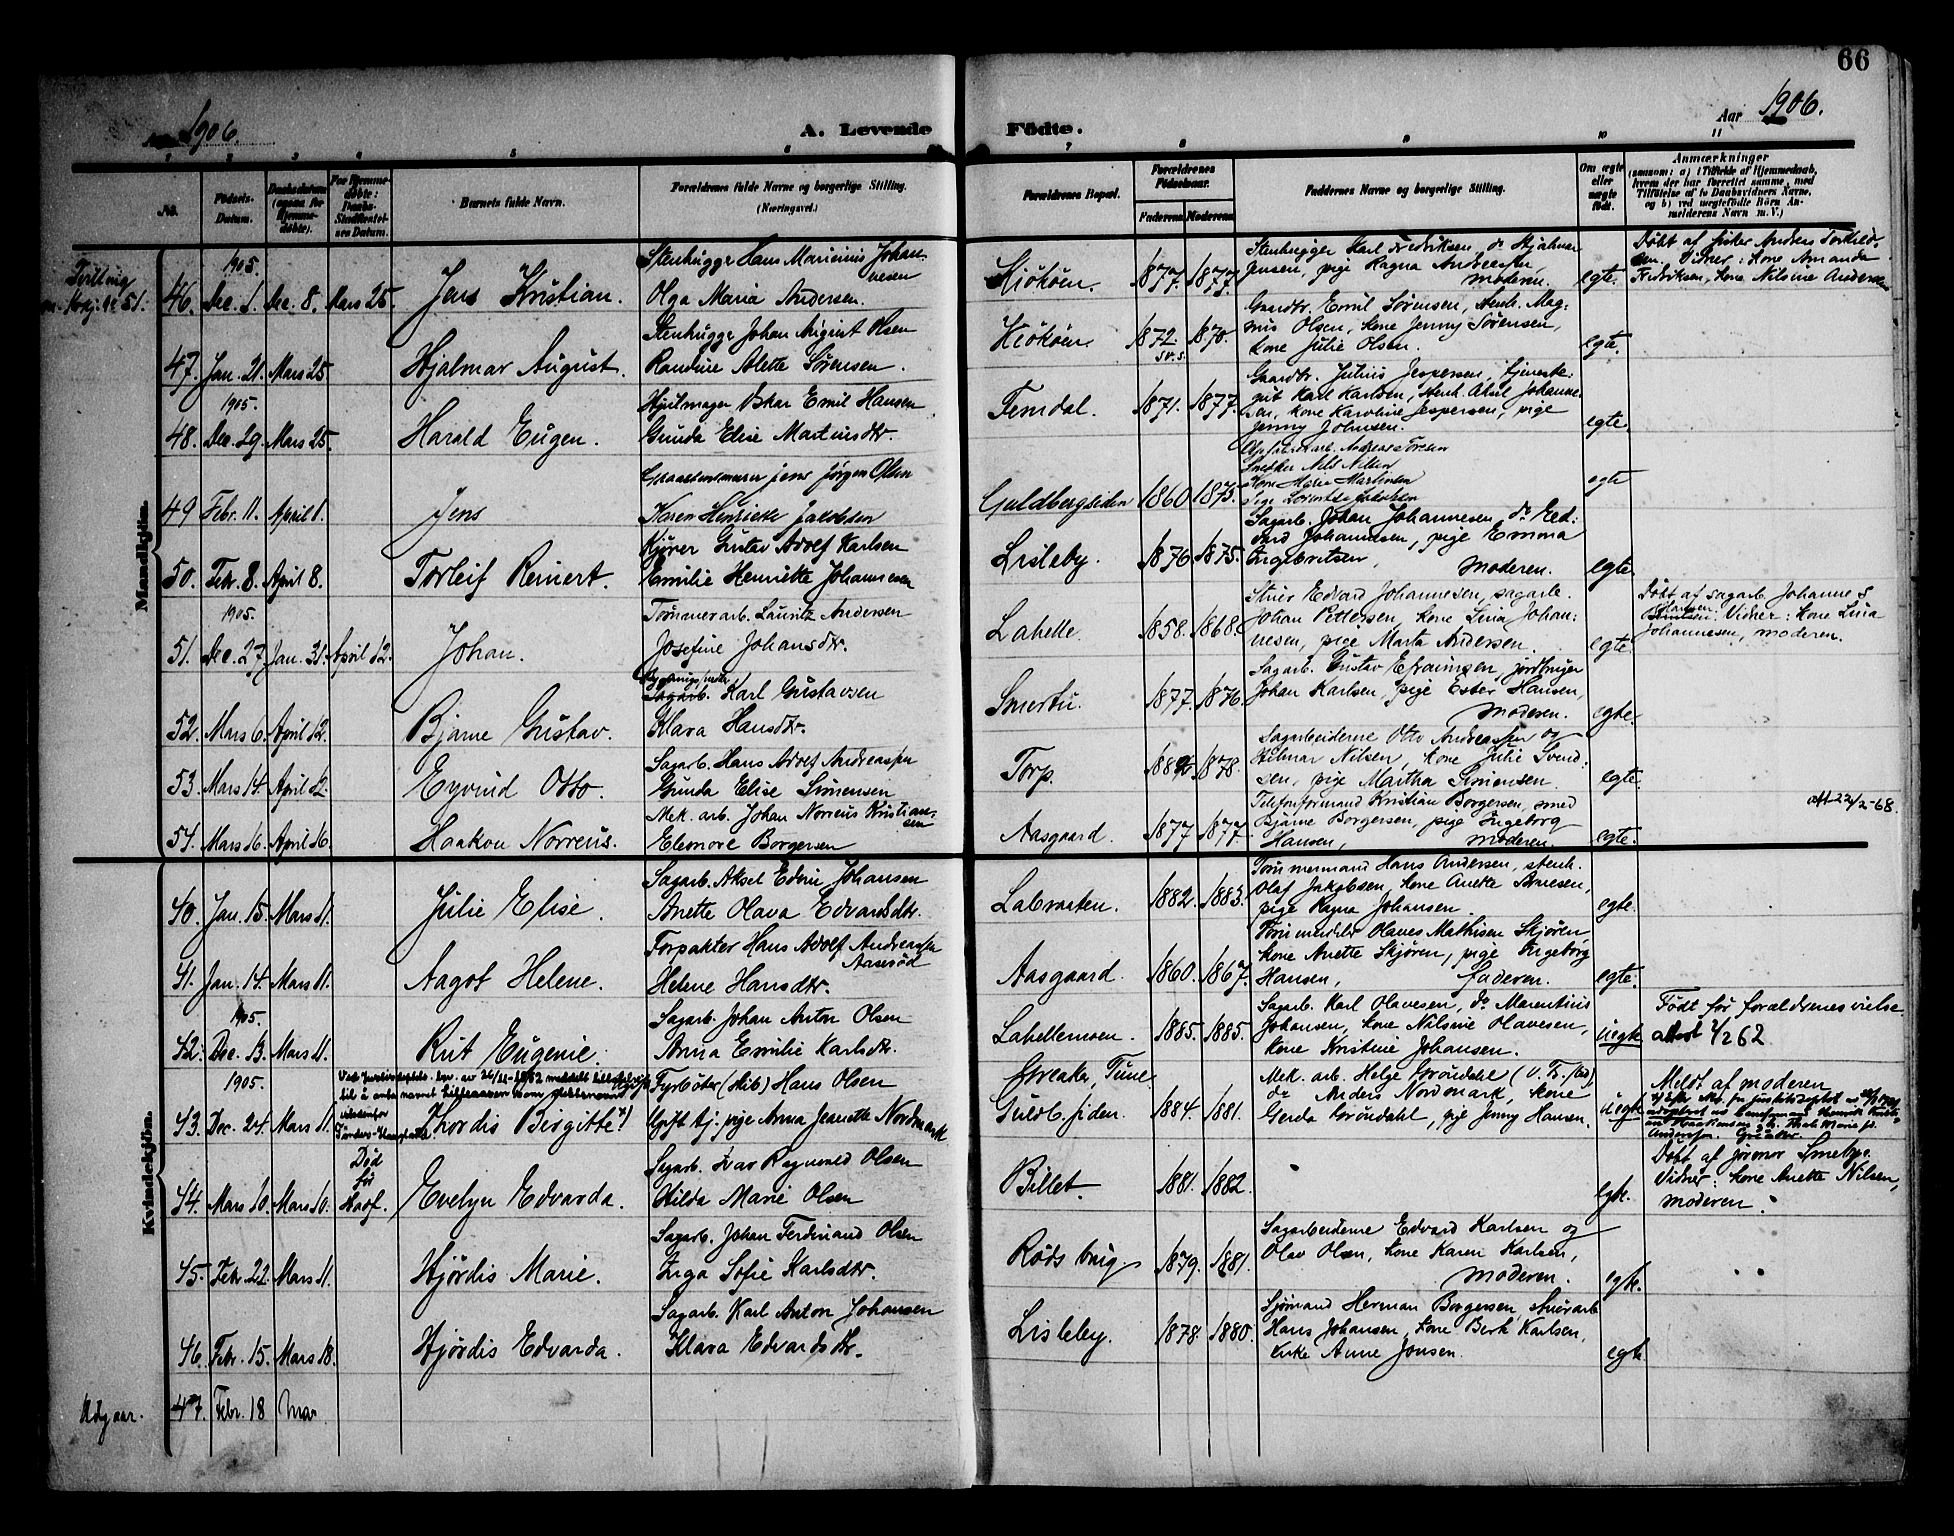 66
Aar 1906.
A. Levende
Fødte.
Aar 1906.
1 2 3 4 5 6 7 8 9 10 11
No.
Fødsels-
Datum.
Daabsdatum
(ogsaa for
Hjemme-
døbte).
For Hjemme-
døbte:
Daabs-
Stadfæstel-
ses Datum.
Barnets fulde Navn.
Forældrenes fulde Navne og borgerlige Stilling.
(Næringsvei.)
Forældrenes Bopæl.
Forældrenes
Fødselsaar.
Faderens Moderens
Faddernes Navne og borgerlige Stilling.
Om ægte
eller
uægte
født.
Anmærkninger
(saasom: a) i Tilfælde af Hjemmedaab,
hvem der har forrettet samme, med
Tilføielse af to Daabsvidners Navne,
og b) ved uægtefødte Børn An-
melderens Navn m. V.)
Mandkjøn.
1905.
46. Dec. 1. Dec. 8. Mars 25. Jens Kristian.
Stenhugger Hans Marinius Johan-
nesen
Olga Maria Andersen.
Kiøkøen. 1877. 1877.
Stenhugger Karl Fredriksen, do Hjalmar
Jensen, pige Ragna Andreassen,
moderen. egte.
Døbt af fisker Andreas Torkild-
sen. Vidner: kone Amanda
Fredriksen, kone Nilsine Andersen
47. Jan. 21. Mars 25. Hjalmar August.
Stenhugger Johan August Olsen
Randine Alette Sørensen.
Kiøkøen. 1872 1870.
sv. s.
Gaardbr. Emil Sørensen, stenh. Mag-
nus Olsen, kone Jenny Sørensen,
kone Julie Olsen. egte.
1905.
48. Dec. 29. Mars 25. Harald Eugen.
Hjulmager Oskar Emil Hansen
Gunda Elise Martinsdtr.
Femdal. 1871. 1877.
Gaardbr. Julius Jespersen, tjeneste-
gut Karl Karlsen, stenh. Aksel Johanne-
sen, kone Karoline Jespersen, pige
Jenny Johnsen. egte.
49 Febr. 11. April 1. Jens
Jens Jørgen Olsen
Karen Henriette Jakobsen
Guldbergsiden 1860 1873.
Snedker Nils Nilsen
Kone Marie Martinsen
egte
50. Febr. 8. April 8. Torleif Reinert.
Kjører Gustav Adolf Karlsen
Emilie Henriette Johannesen
Lisleby. 1876 1875.
Sagarb. Johan Johannesen, do Ed-
vard Johannesen, pige Emma
Ingebretsen, moderen. egte.
1905.
51. Dec. 27. Jan. 31. April 12. Johan.
Tømmerarb. Lauritz Andersen
Josefine Johansdtr.
Labelle. 1858. 1868.
Stuer Edvard Johannesen, sagarb.
Johan Pettersen, kone Lina Johan-
nesen, pige Marta Andersen. egte.
Døbt af sagarb. Johannes
Hansen. Vidner: kone Lina
Johannesen, moderen.
52. Mars 6. April 12. Bjarne Gustav.
Sagarb. Karl Gustavsen
Klara Hansdtr.
Smertu. 1877. 1876.
Sagarb. Gustav Efraimsen, jordbruger
Johan Karlsen, pige Ester Hansen,
moderen. egte.
53. Mars 14. April 12. Eyvind Otto.
Sagarb. Hans Adolf Andreassen
Gunda Elise Simensen
Torp. 1878.
Sagarbeiderne Otto Andreassen og
Hilmar Nilsen, kone Julie Svend-
sen, pige Martha Simensen. egte.
54. Mars 16. April 16. Haakon Norreus.
Mek. arb. Johan Norreus Kristian-
sen
Eleonore Borgersen
Aasgaard. 1877 1877.
Telefonformand Kristian Borgersen, med
Bjarne Borgersen, pige Ingeborg
Hansen, moderen. egte.
att 22/2-68.
Kvindekjøn.
40. Jan. 15. Mars 11. Julie Elise.
Sagarb. Aksel Edvin Johansen
Anette Olava Edvardsdtr.
Labraaten. 1882. 1883.
Tømmermand Hans Andersen, stenh.
Olaf Jakobsen, kone Anette
pige Ragna Johansen. egte.
41. Jan. 14. Mars 11. Aagot Helene.
Forpakter Hans Adolf Andreassen
Aaserød
Helene Hansdtr.
Aasgaard. 1860. 1867.
Olaves Mathisen Skjøren
kone Anette Skjøren, pige Ingeborg
Hansen, faderen. egte.
1905.
42. Dec. 13. Mars 11. Rut Eugenie.
Sagarb. Johan Anton Olsen
Anna Emilie Karlsdtr.
Labellemoen. 1885. 1885.
Sagarb. Karl Olavesen, do Marentius
Johansen, kone Nilsine Olavesen,
kone Kristine Johansen. uegte
Født før forældrenes vielse
attest 1/2 62
1905.
43. Dec. 24. Mars 11. Thordis Birgitte x)
Fyrbøter (Hib) Hans Olsen
Ugift Aj. pige Anna Jeanette Nordmark
Greaker, Tune.
Guldb. siden. 1884. 1881.
Mek. arb. Helge Grøndahl,
do Anders Nordmark, kone
Gerda Grøndahl, pige Jenny Hansen. uegte
Meldt af moderen
44. Mars 10. Mars 10. Død
før
Stadf. Evelyn Edvarda.
Sagarb. Ivar Ragnvald Olsen
Hilda Marie Olsen
Billet. 1881. 1882. egte.
Døbt af jormor
Vidner: kone Anette Nilsen,
moderen.
45. Febr. 22. Mars 11. Hjørdis Marie.
Sagarb. Johan Ferdinand Olsen
Inga Sofie Karlsdtr.
Røds brug 1879. 1881.
Sagarbeiderne Edvard Karlsen og
Olav Olsen, kone Karen Karlsen,
moderen. egte.
46. Febr. 15. Mars 18. Hjørdis Edvarda.
Sagarb. Karl Anton Johansen
Klara Edvardsdtr.
Lisleby. 1878. 1880.
Sjømand Herman Borgersen,
Hans Johansen, kone Berk Karlsen,
enke Anne Jonsen. egte
Udgaar. 47. Febr. 18 Mar